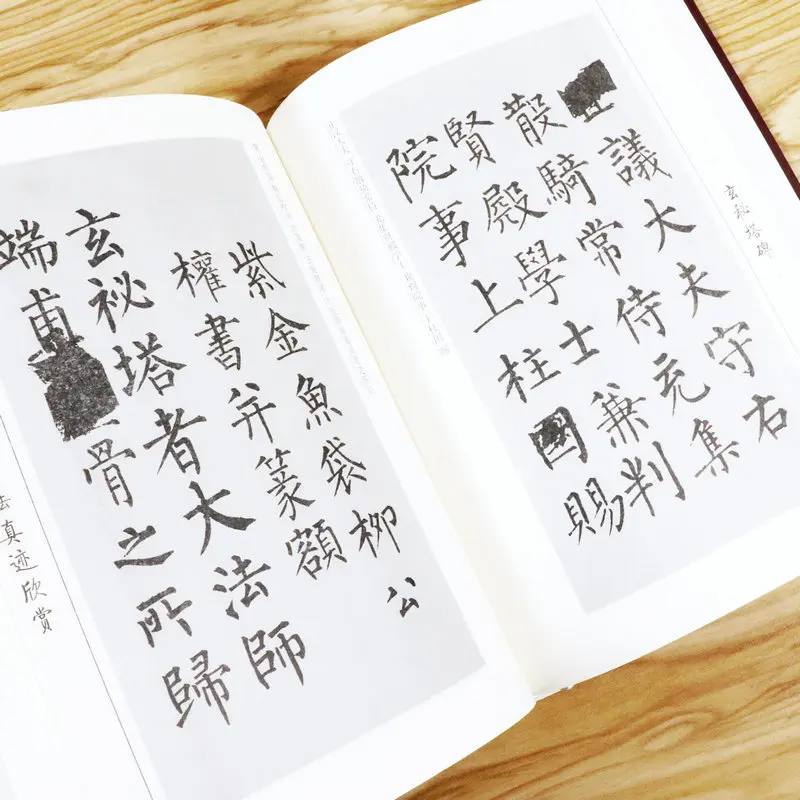 玄秘塔碑
議大夫守右
散騎常侍充集
賢殿學士兼判
院事上柱國賜
紫金魚袋柳公
權書并篆額
玄祕塔者大法師
端甫骨之所歸
真迹欣赏